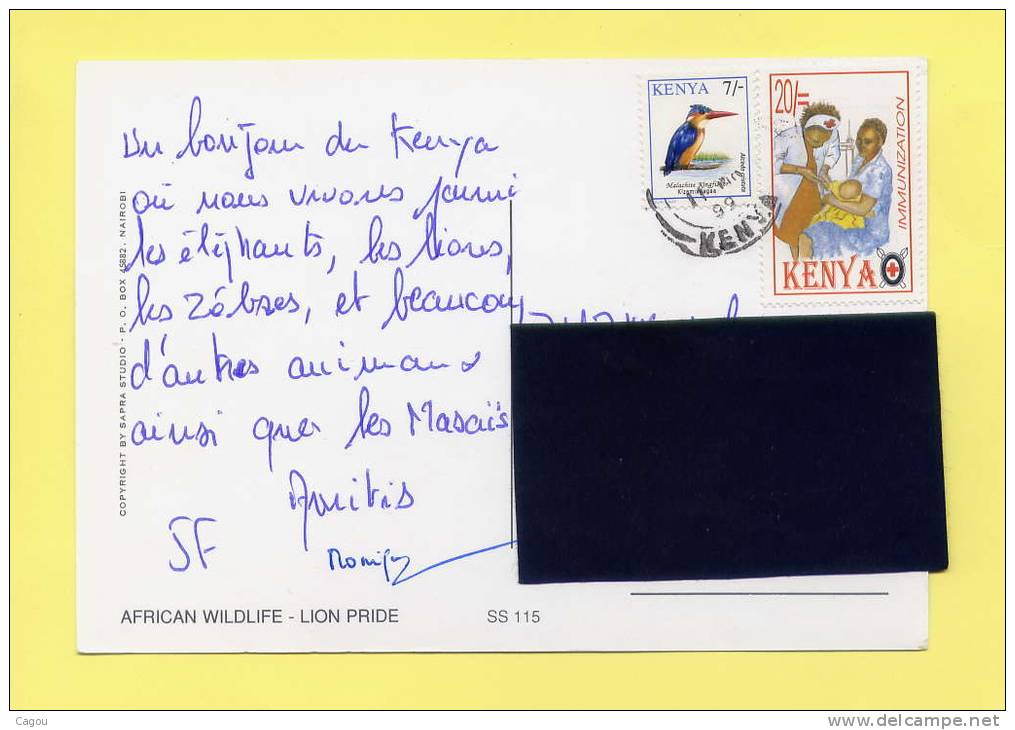 KENYA 7/-
Malachite Kingfisher
Alcedo cristata
20/=
IMMUNIZATION
KENYA
KENYA
Un bonjour du Kenya
où nous vivons parmi
les éléphants, les lions,
les zébres, et beaucoup
d'autres animaux
ainsi que les Masaïs
Amitiés
JF
COPYRIGHT BY SAPRA STUDIO - P. O. BOX 45882, NAIROBI
AFRICAN WILDLIFE - LION PRIDE SS 115
Cagou
www.delcampe.net